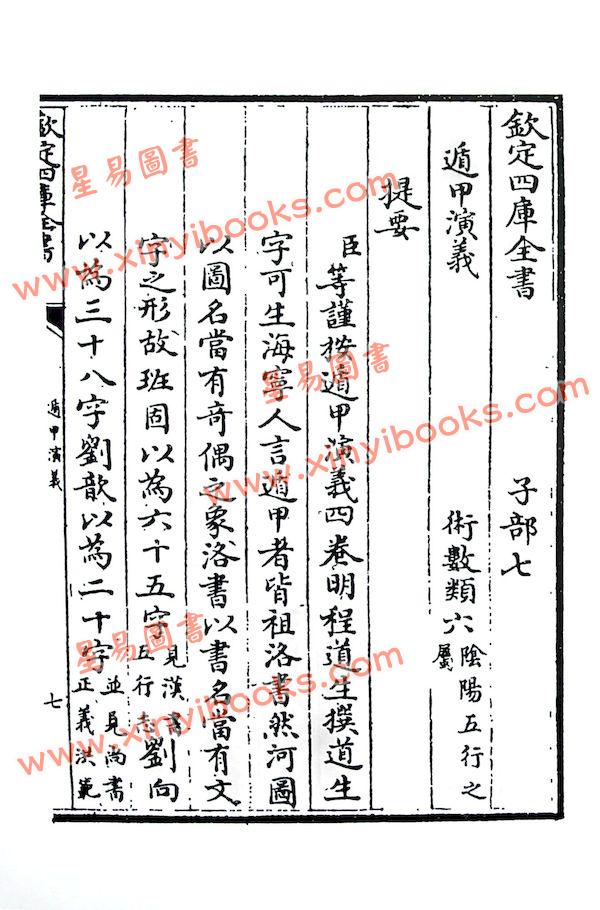 欽定四庫全書 子部七
遁甲演義 術數類六 陰陽五行之屬
提要
臣等謹按遁甲演義四卷明程道生撰道生
字可生海寧人言遁甲者皆祖洛書然河圖
以圖名當有奇偶之象洛書以書名當有文
字之形故班固以為六十五字見漢書五行志劉向
以為三十八字劉歆以為二十字並見尚書正義洪範
欽定四庫全書
遁甲演義
七
星易圖書
www.xinyibooks.com
星易圖書
www.xinyibooks.com
星易圖書
www.xinyibooks.com